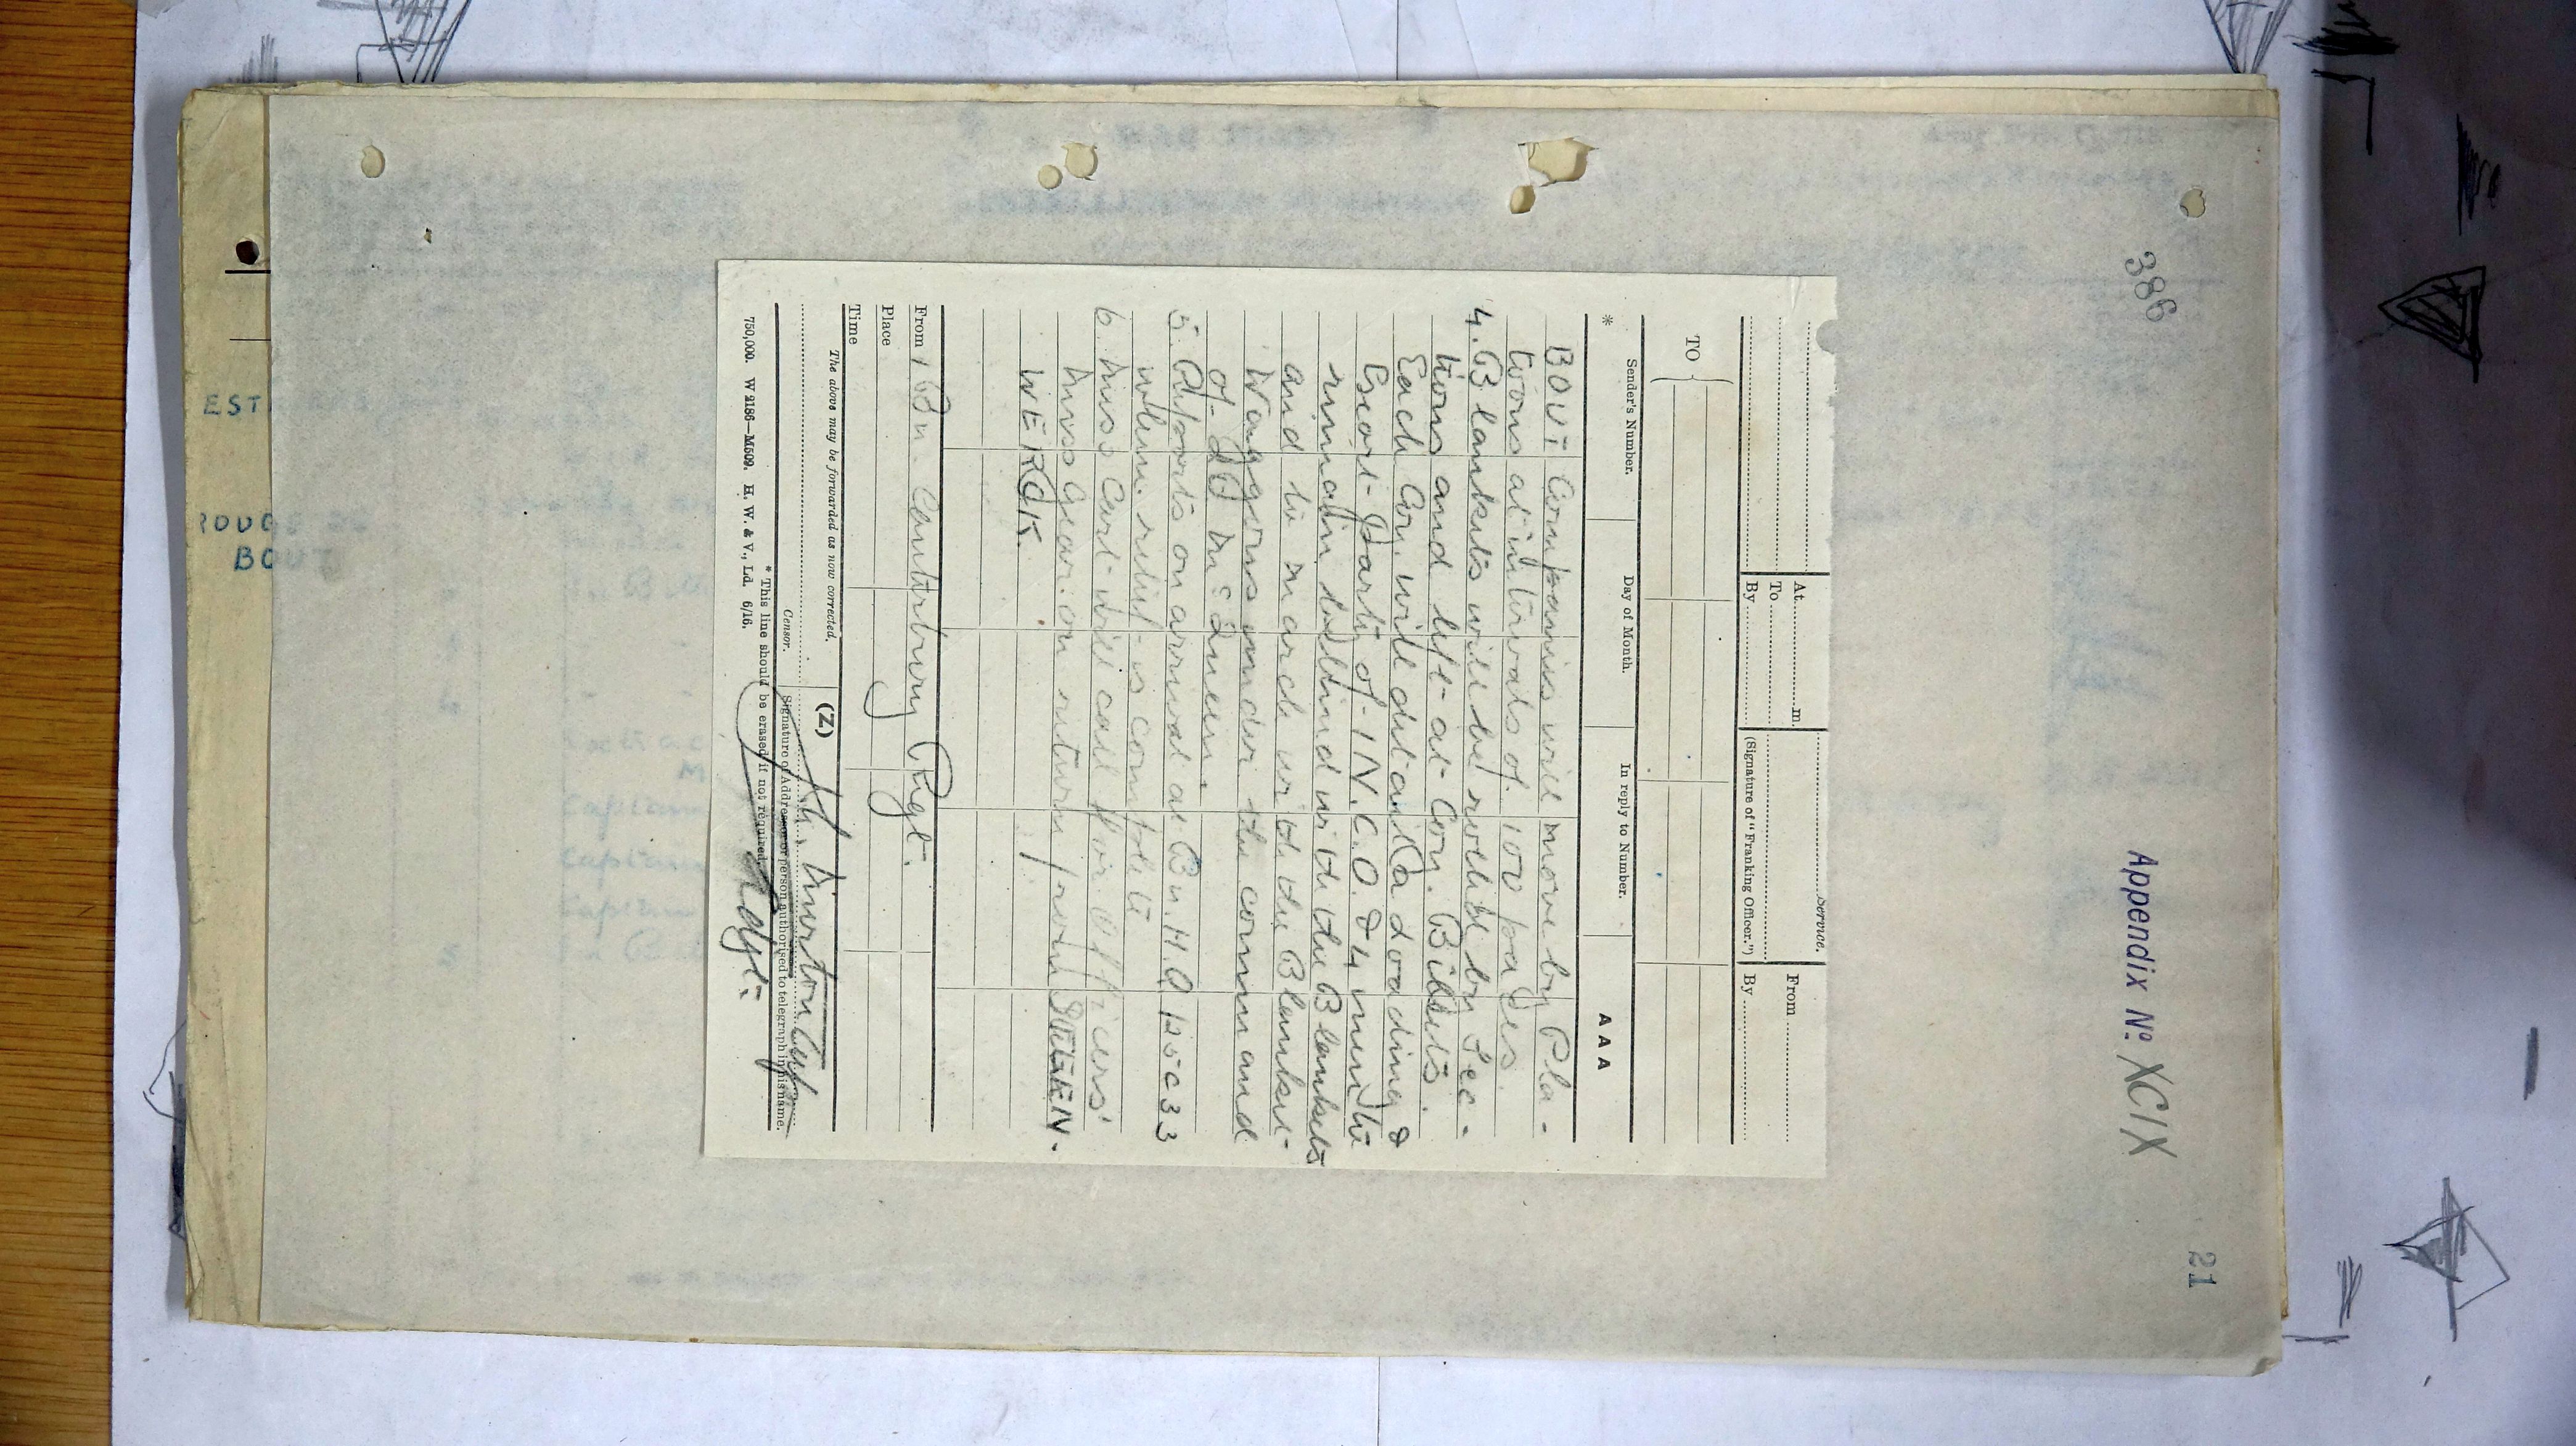 386
Appendix Nº XCIX
21
Service.
From
At m.
To
By
(Signature of "Franking Officer.")
By
TO
Sender's Number.
Day of Month.
In reply to Number.
AAA
*
BOUT Companies will move by Pla-
toons at intervals of 100 paces.
4. Blankets will be rolled by Sec-
tions and left at Coy. Billets.
Each Coy. will detail a Loading &
Escort Party of 1 N.C.O. & 4 men to
remain behind with the Blankets
and to march with the Blanket
Waggons under the command
of
5. Reports on arrival at Bn. H.Q. 
when relief is complete
6. Mess Cart will call for Officers'
Mess Gear on return from
From 1 Bn. Canterbury Regt.
Place
Time
The above may be forwarded as now corrected.
(Z)
Censor.
Signature of Addressor or person authorised to telegraph in his name.
* This line should be erased if not required.
Adjt.
750,000. W 2186—M509. H. W. & V., Ld. 6/16.
EST
ROUGE DE
BOUT